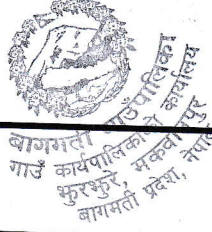 बागमती गाउँपालिका
गाउँ कार्यपालिकाको कार्यालय
भुरभुरे, मकवानपुर
बागमती प्रदेश, नेपाल